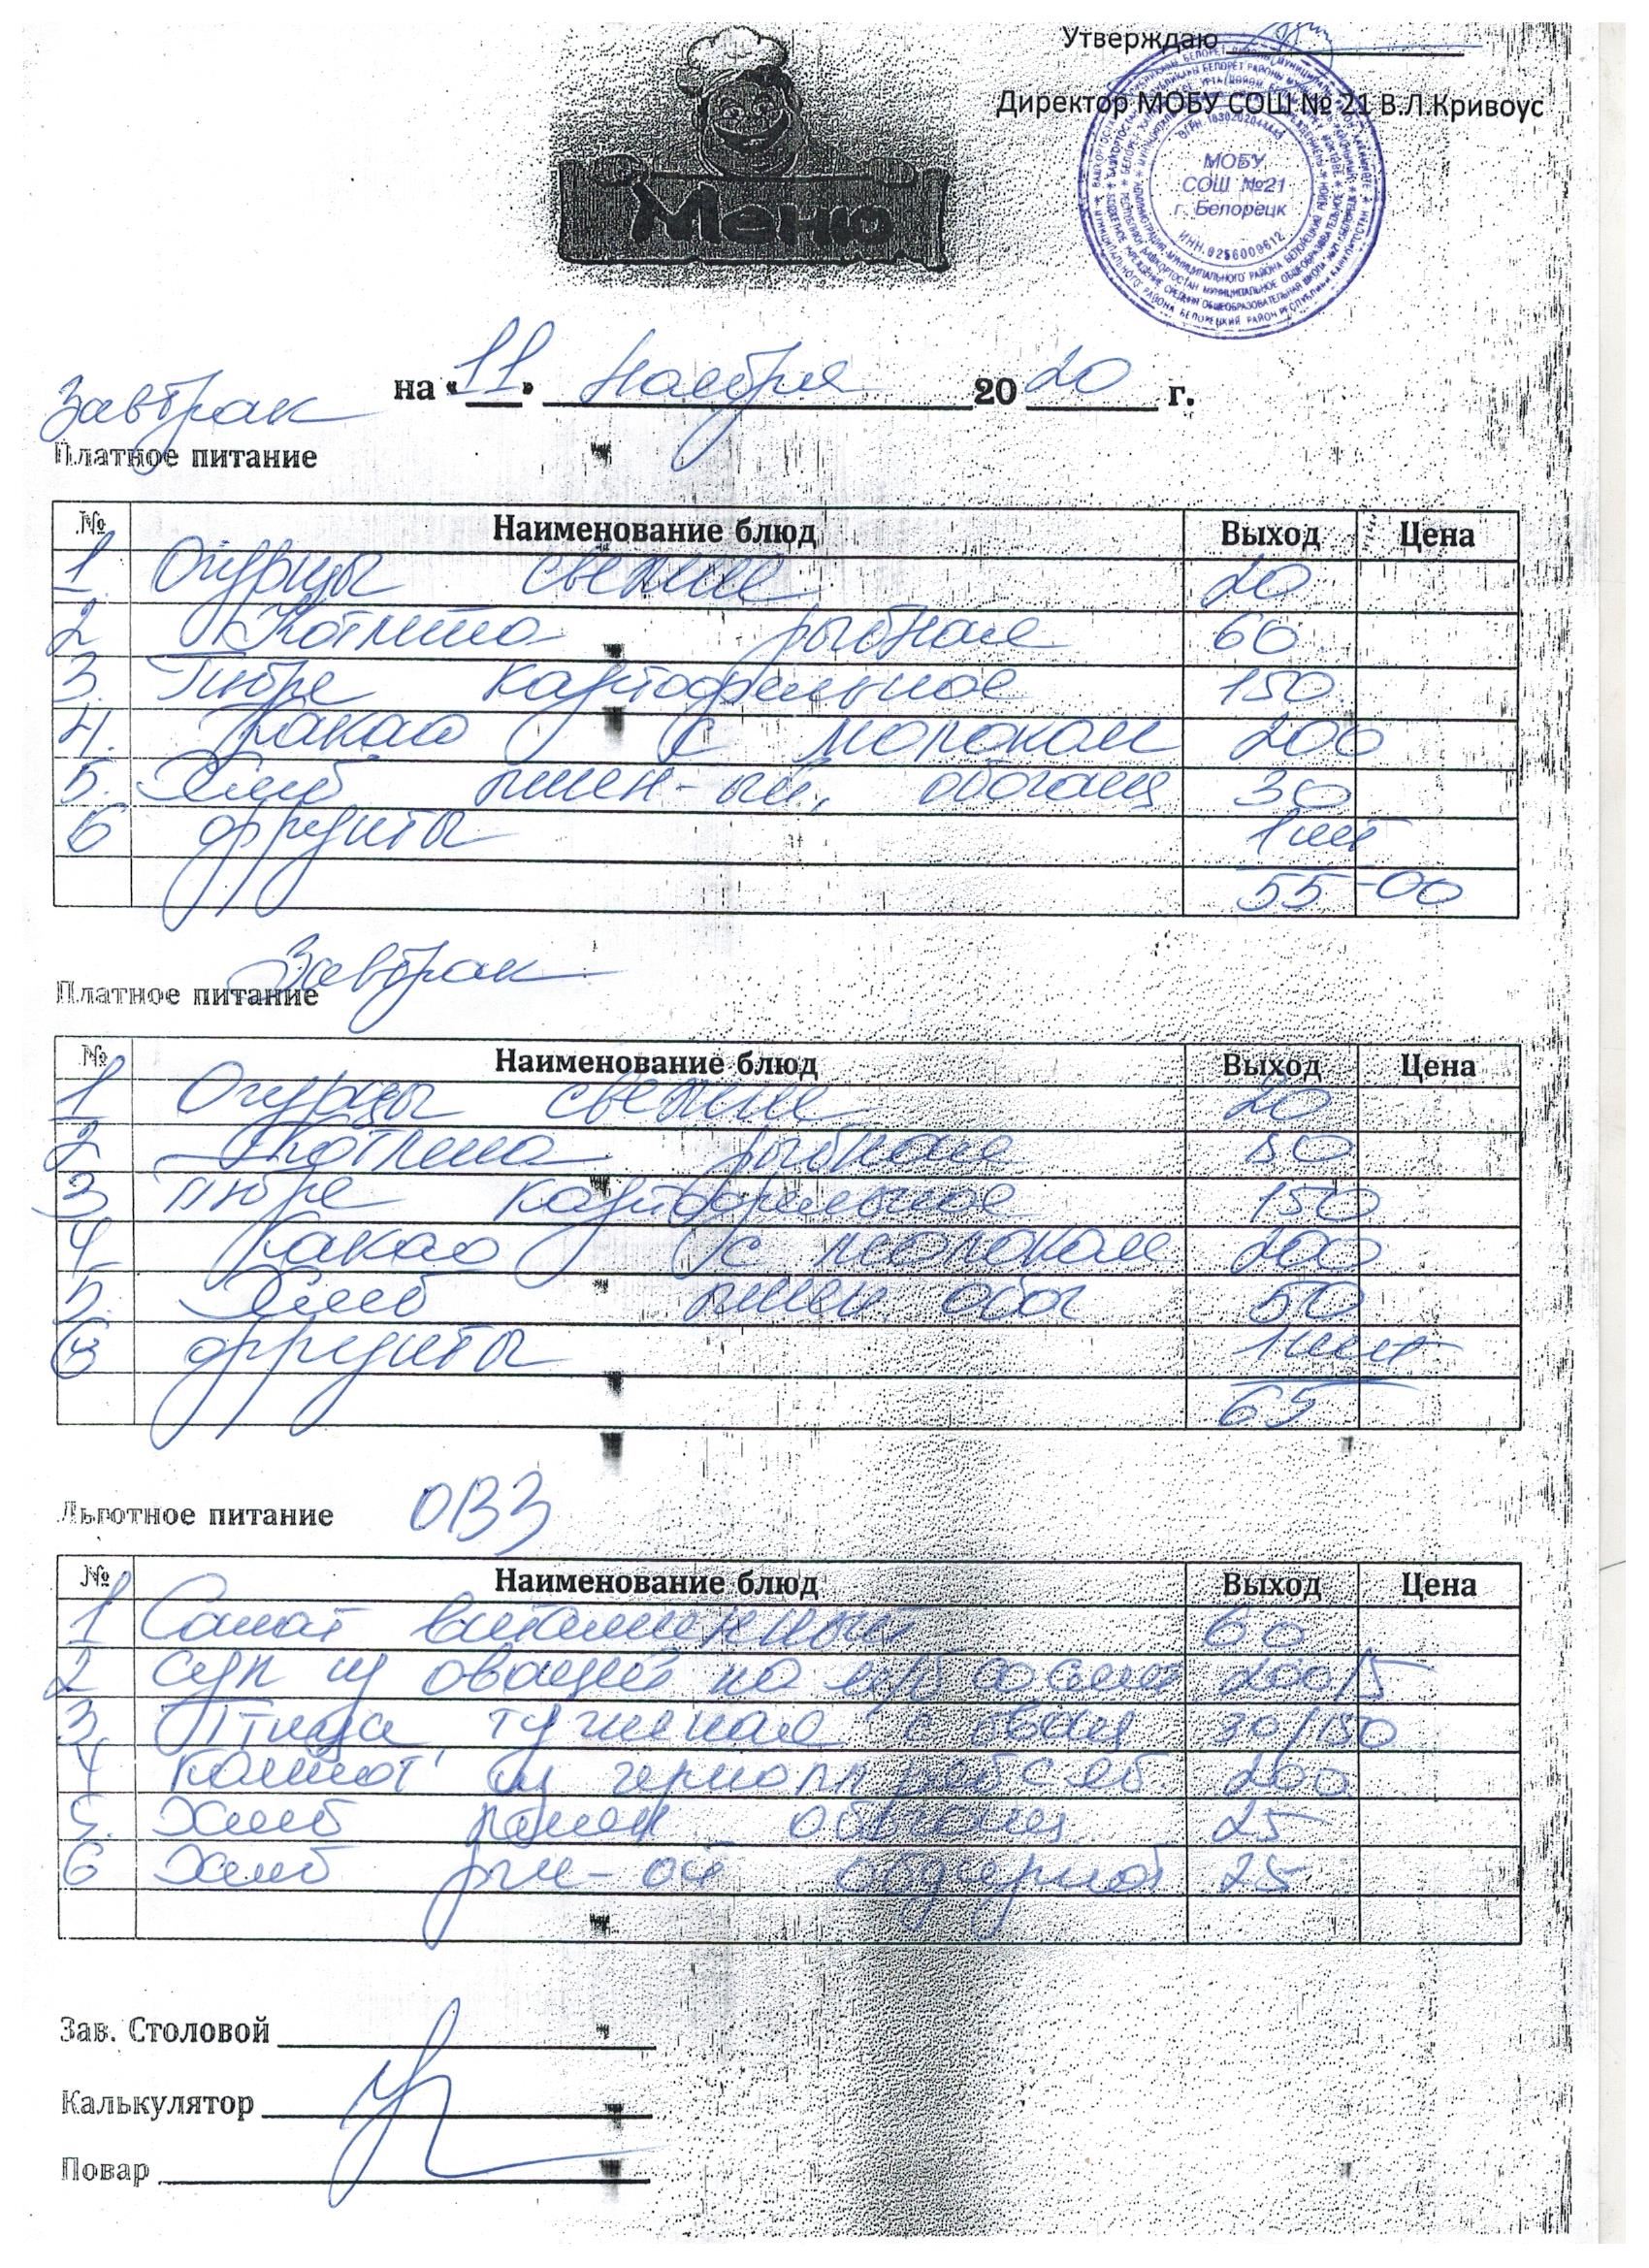 Утверждаю
Директор МОБУ СОШ № 21 В.Л.Кривоус
МОБУ
СОШ №21
г. Белорецк
ИНН 0256009612
Меню
на «11» Ноября 2020 г.
Завтрак
Платное питание
№ Наименование блюд Выход Цена
1. Огурцы свежие 20
2 Котлета рыбная 60
3. Пюре картофельное 150
4. Какао с молоком 200
5. Хлеб пшен-ый, обогащ 30
6 фрукты 1шт
55-00
Завтрак
Платное питание
№ Наименование блюд Выход Цена
1 Огурцы свежие 20
2 Котлета рыбная 80
3 Пюре картофельное 150
4 Какао с молоком 200
5. Хлеб пшен. обог 50
6 фрукты 1шт
65
Льготное питание ОВЗ
№ Наименование блюд Выход Цена
1 Салат витаминный 60
2 Суп из овощей на м/б со смет 200/5
3. Птица, тушеная с овощ 30/150
4 Компот из 200
5. Хлеб пшен обогащ 25
6 Хлеб рж-ой обдирной 25
Зав. Столовой
Калькулятор
Повар